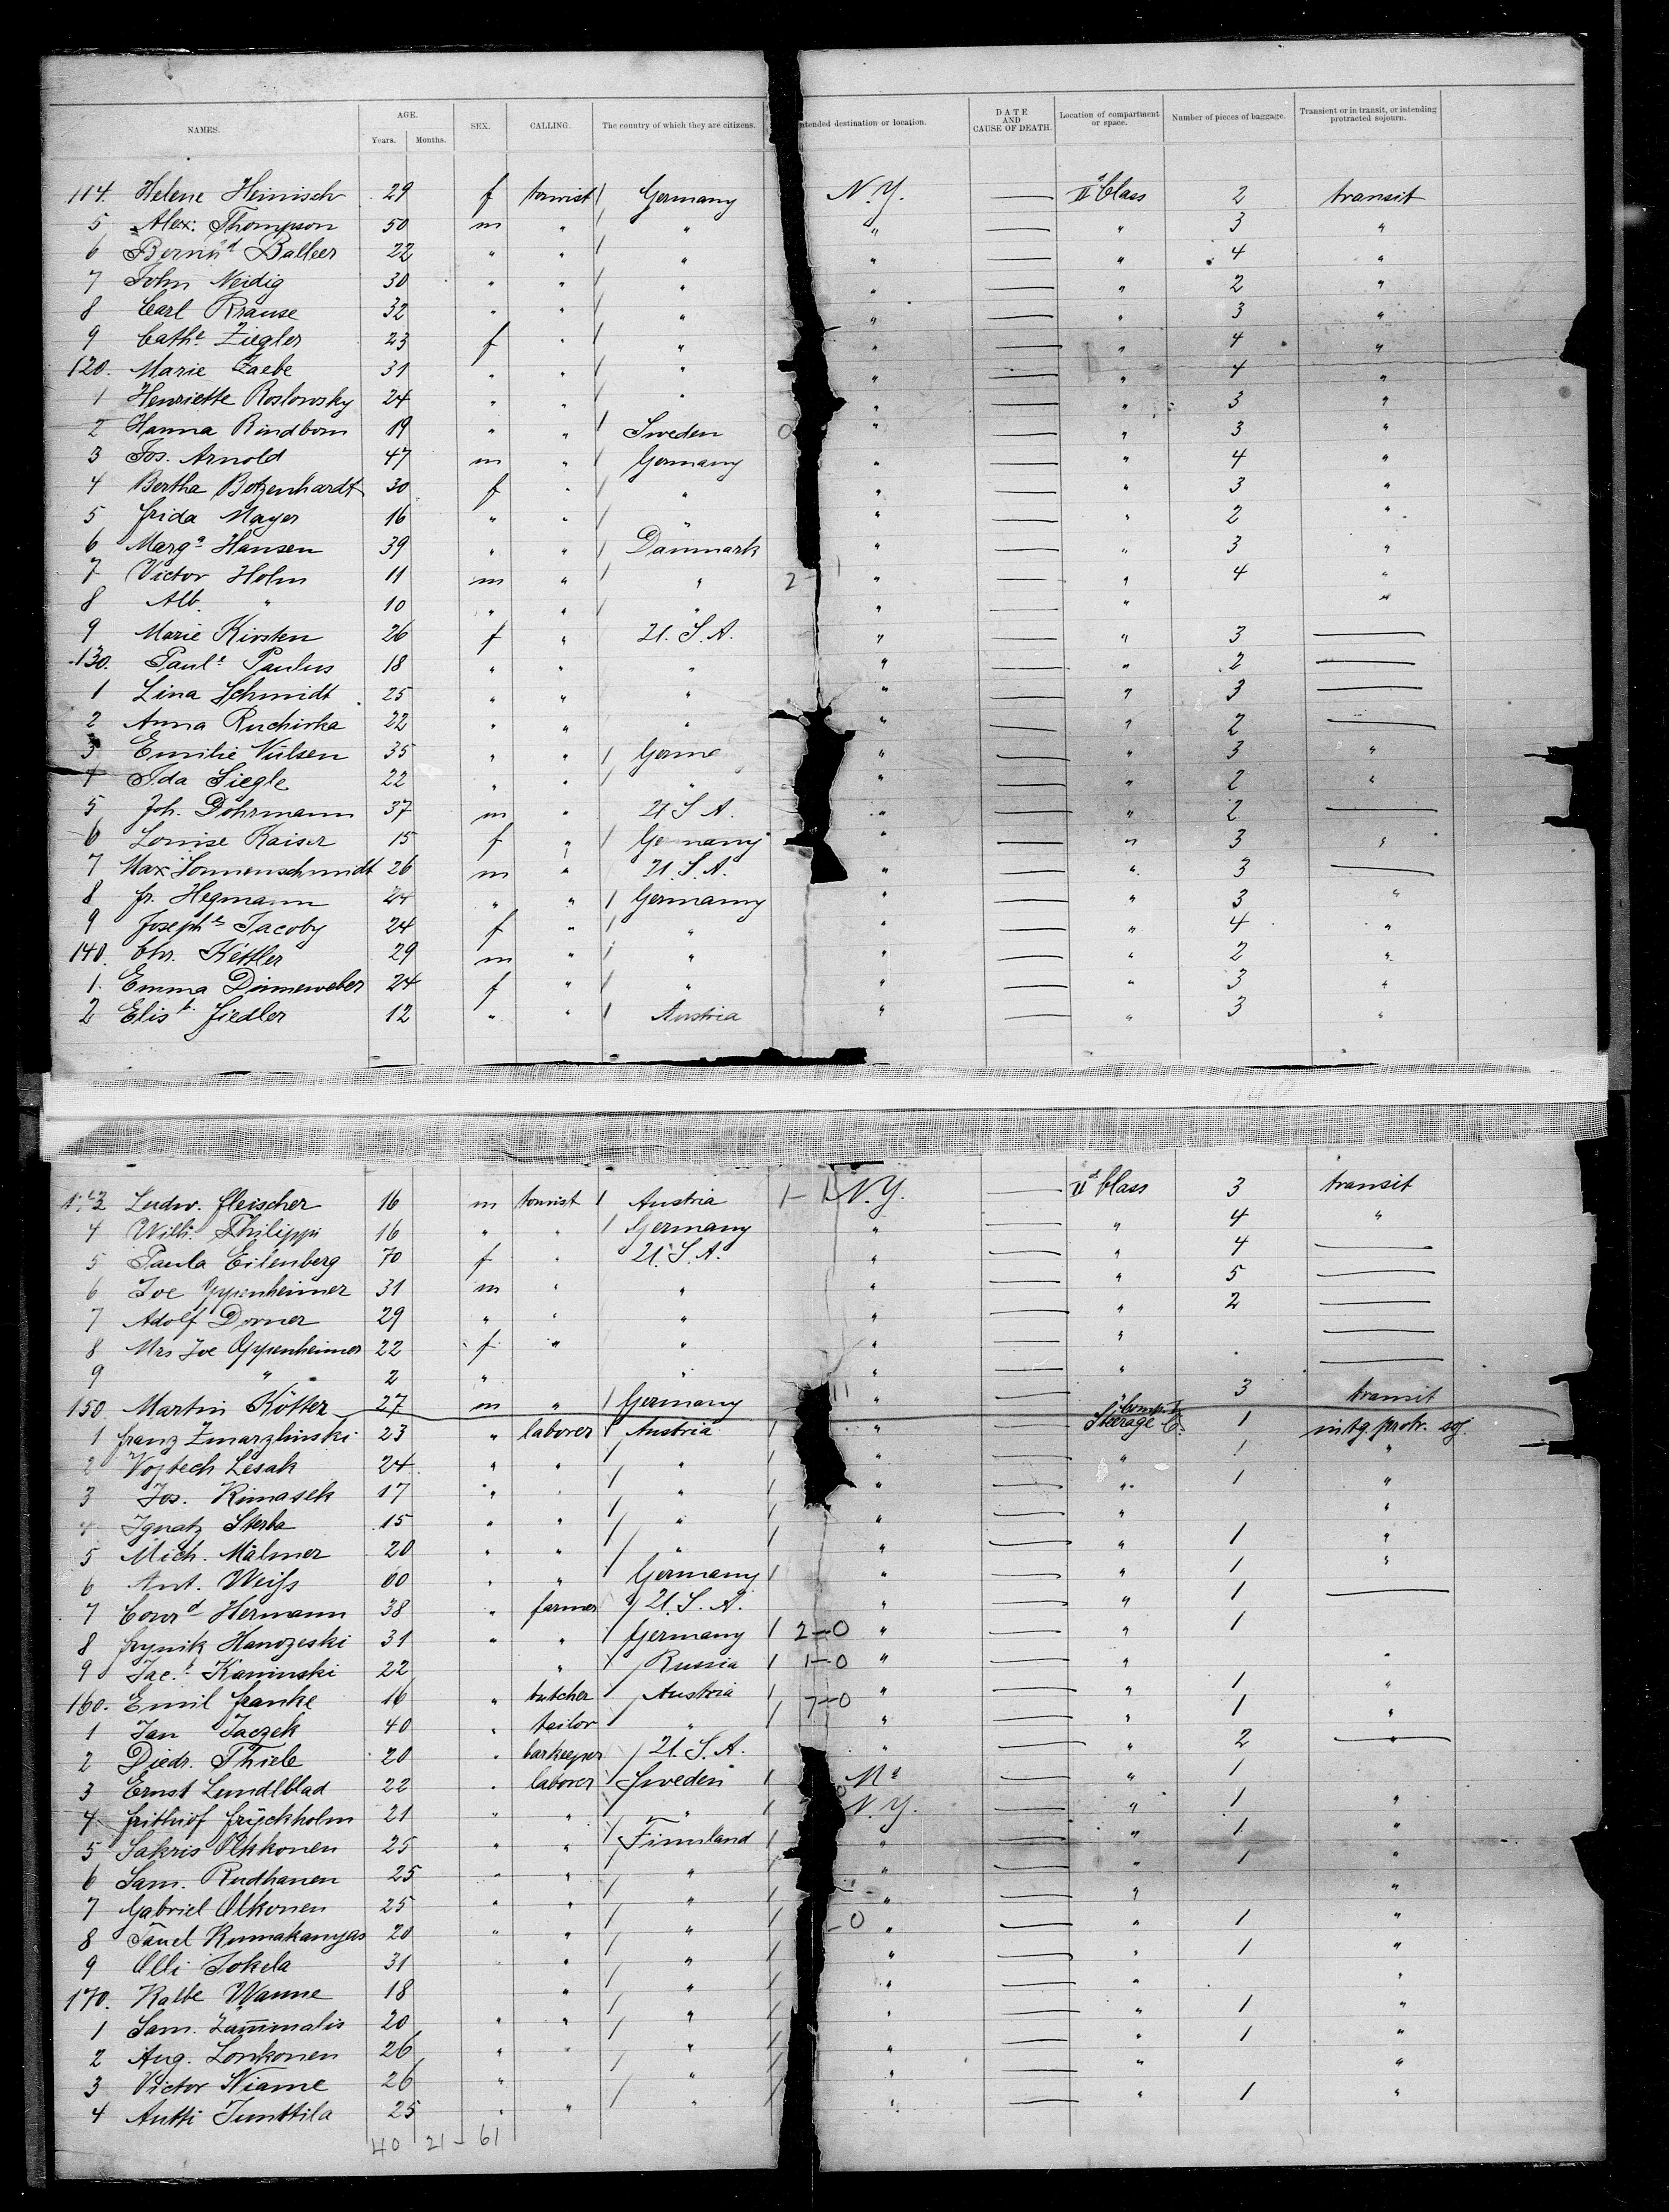 NAMES. AGE. Years. Months. SEX. CALLING. The country of which they are citizens. Intended destination or location. DATE AND CAUSE OF DEATH. Location of compartment or space. Number of pieces of baggage. Transient or in transit, or intending protracted sojourn.
114. Helene Heinisch 29 f tourist / Germany N.Y. — IId Class 2 transit
5 Alex. Thompson 50 m " / " " — " 3 "
6 Bernhd Balleer 22 " " / " " — " 4 "
7 John Neidig 30 " " / " " — " 2 "
8 Carl Krause 32 " " / " " — " 3 "
9 Cathe Ziegler 23 f " / " " — " 4 "
120. Marie Zaebe 31 " " / " " — " 4 "
1 Henriette Roslowsky 24 " " / " " — " 3 "
2 Hanna Rindbom 19 " " / Sweden 0 " — " 3 "
3 Jos. Arnold 47 m " / Germany " — " 4 "
4 Bertha Botzenhardt 30 f " / " " — " 3 "
5 Frida Mayer 16 " " / " " — " 2 "
6 Marga Hansen 39 " " / Danmark " — " 3 "
7 Victor Holm 11 m " / " 2-1 " — " 4 "
8 Alb. " 10 " " / " " — " "
9 Marie Kirsten 26 f " U.S.A. " — " 3 —
130. Paule Paulus 18 " " " " — " 2 —
1 Lina Schmidt 25 " " " " — " 3 —
2 Anna Ruchirka 22 " " " " — " 2 —
3 Emilie Vülsen 35 " " / Germa " — " 3 "
4 Ida Siegle 22 " " / " " — " 2 "
5 Joh. Döhrmann 37 m " U.S.A. " — " 2 —
6 Louise Kaiser 15 f " / Germany " — " 3 "
7 Max Sonnenschmidt 26 m " U.S.A. " — " 3 —
8 Fr. Hegmann 24 " " / Germany " — " 3 "
9 Josephe Jacoby 24 f " / " " — " 4 "
140. Chr. Kettler 29 m " / " " — " 2 "
1. Emma Dinneweber 24 f " / " " — " 3 "
2 Elisb. Fiedler 12 " " / Austria " — " 3 "
143 Ludw. Fleischer 16 m tourist / Austria 1-1 N.Y. — IId Class 3 transit
4 Willi. Philippi 16 " " / Germany " — " 4 "
5 Paula Eilenberg 70 f " U.S.A. " — " 4 —
6 Joe Oppenheimer 31 m " " " — " 5 —
7 Adolf Dorner 29 " " " " — " 2 —
8 Mrs Joe Oppenheimer 22 f " " " — " —
9 " 2 " " " — " —
150. Martin Kötter 27 m " / Germany 11 " 3 transit
1 Franz Zmarzlinski 23 " laborer / Austria / " — Steerage C. 1 intg. protr. soj.
2 Vojtech Lesak 24 " " / " / " — " 1 "
3 Jos. Rimasek 17 " " / " / " — " 1 "
4 Ignatz Sterba 15 " " / " / " — " "
5 Mich. Mälmer 20 " " / " / " — " 1 "
6 Ant. Weiss 60 " " / Germany / " — " 1 "
7 Conrd Hermann 38 " farmer U.S.A. " — " 1 —
8 Frynik Hanozeski 31 " " / Germany / 2-0 " — " 1
9 Jac. Kaminski 22 " / Russia / 1-0 " — " "
160. Emil Franke 16 " butcher / Austria / 7-0 " — " 1 "
1 Jan Jaczek 40 " tailor / " / " — " 1 "
2 Diedr. Thiele 20 " barkeeper U.S.A. " — " 2 —
3 Ernst Lundlblad 22 " laborer / Sweden / — " 1
4 Frithiof Frÿckholm 21 " " / " / N.Y. — " 1 "
5 Sakris Olkkonen 25 " " / Finnland / " — " 1 "
6 Sam. Rudhanen 25 " " / " / " — " 1 "
7 Gabriel Olkonen 25 " " / " / " — " "
8 Kumakangas 20 " " / " / -0 " — " 1 "
9 Olli Jokela 31 " / " / " — " 1 "
170. Kalle Wanne 18 " / " / " — " "
1 Sam. 20 " " / " / " — " 1 "
2 Aug. Lonkonen 26 " " / " / " — " 1 "
3 Victor Niame 26 " / " / " — " "
4 Antti Junttila 25 " " / " / " — " 1 "
40 21 - 61